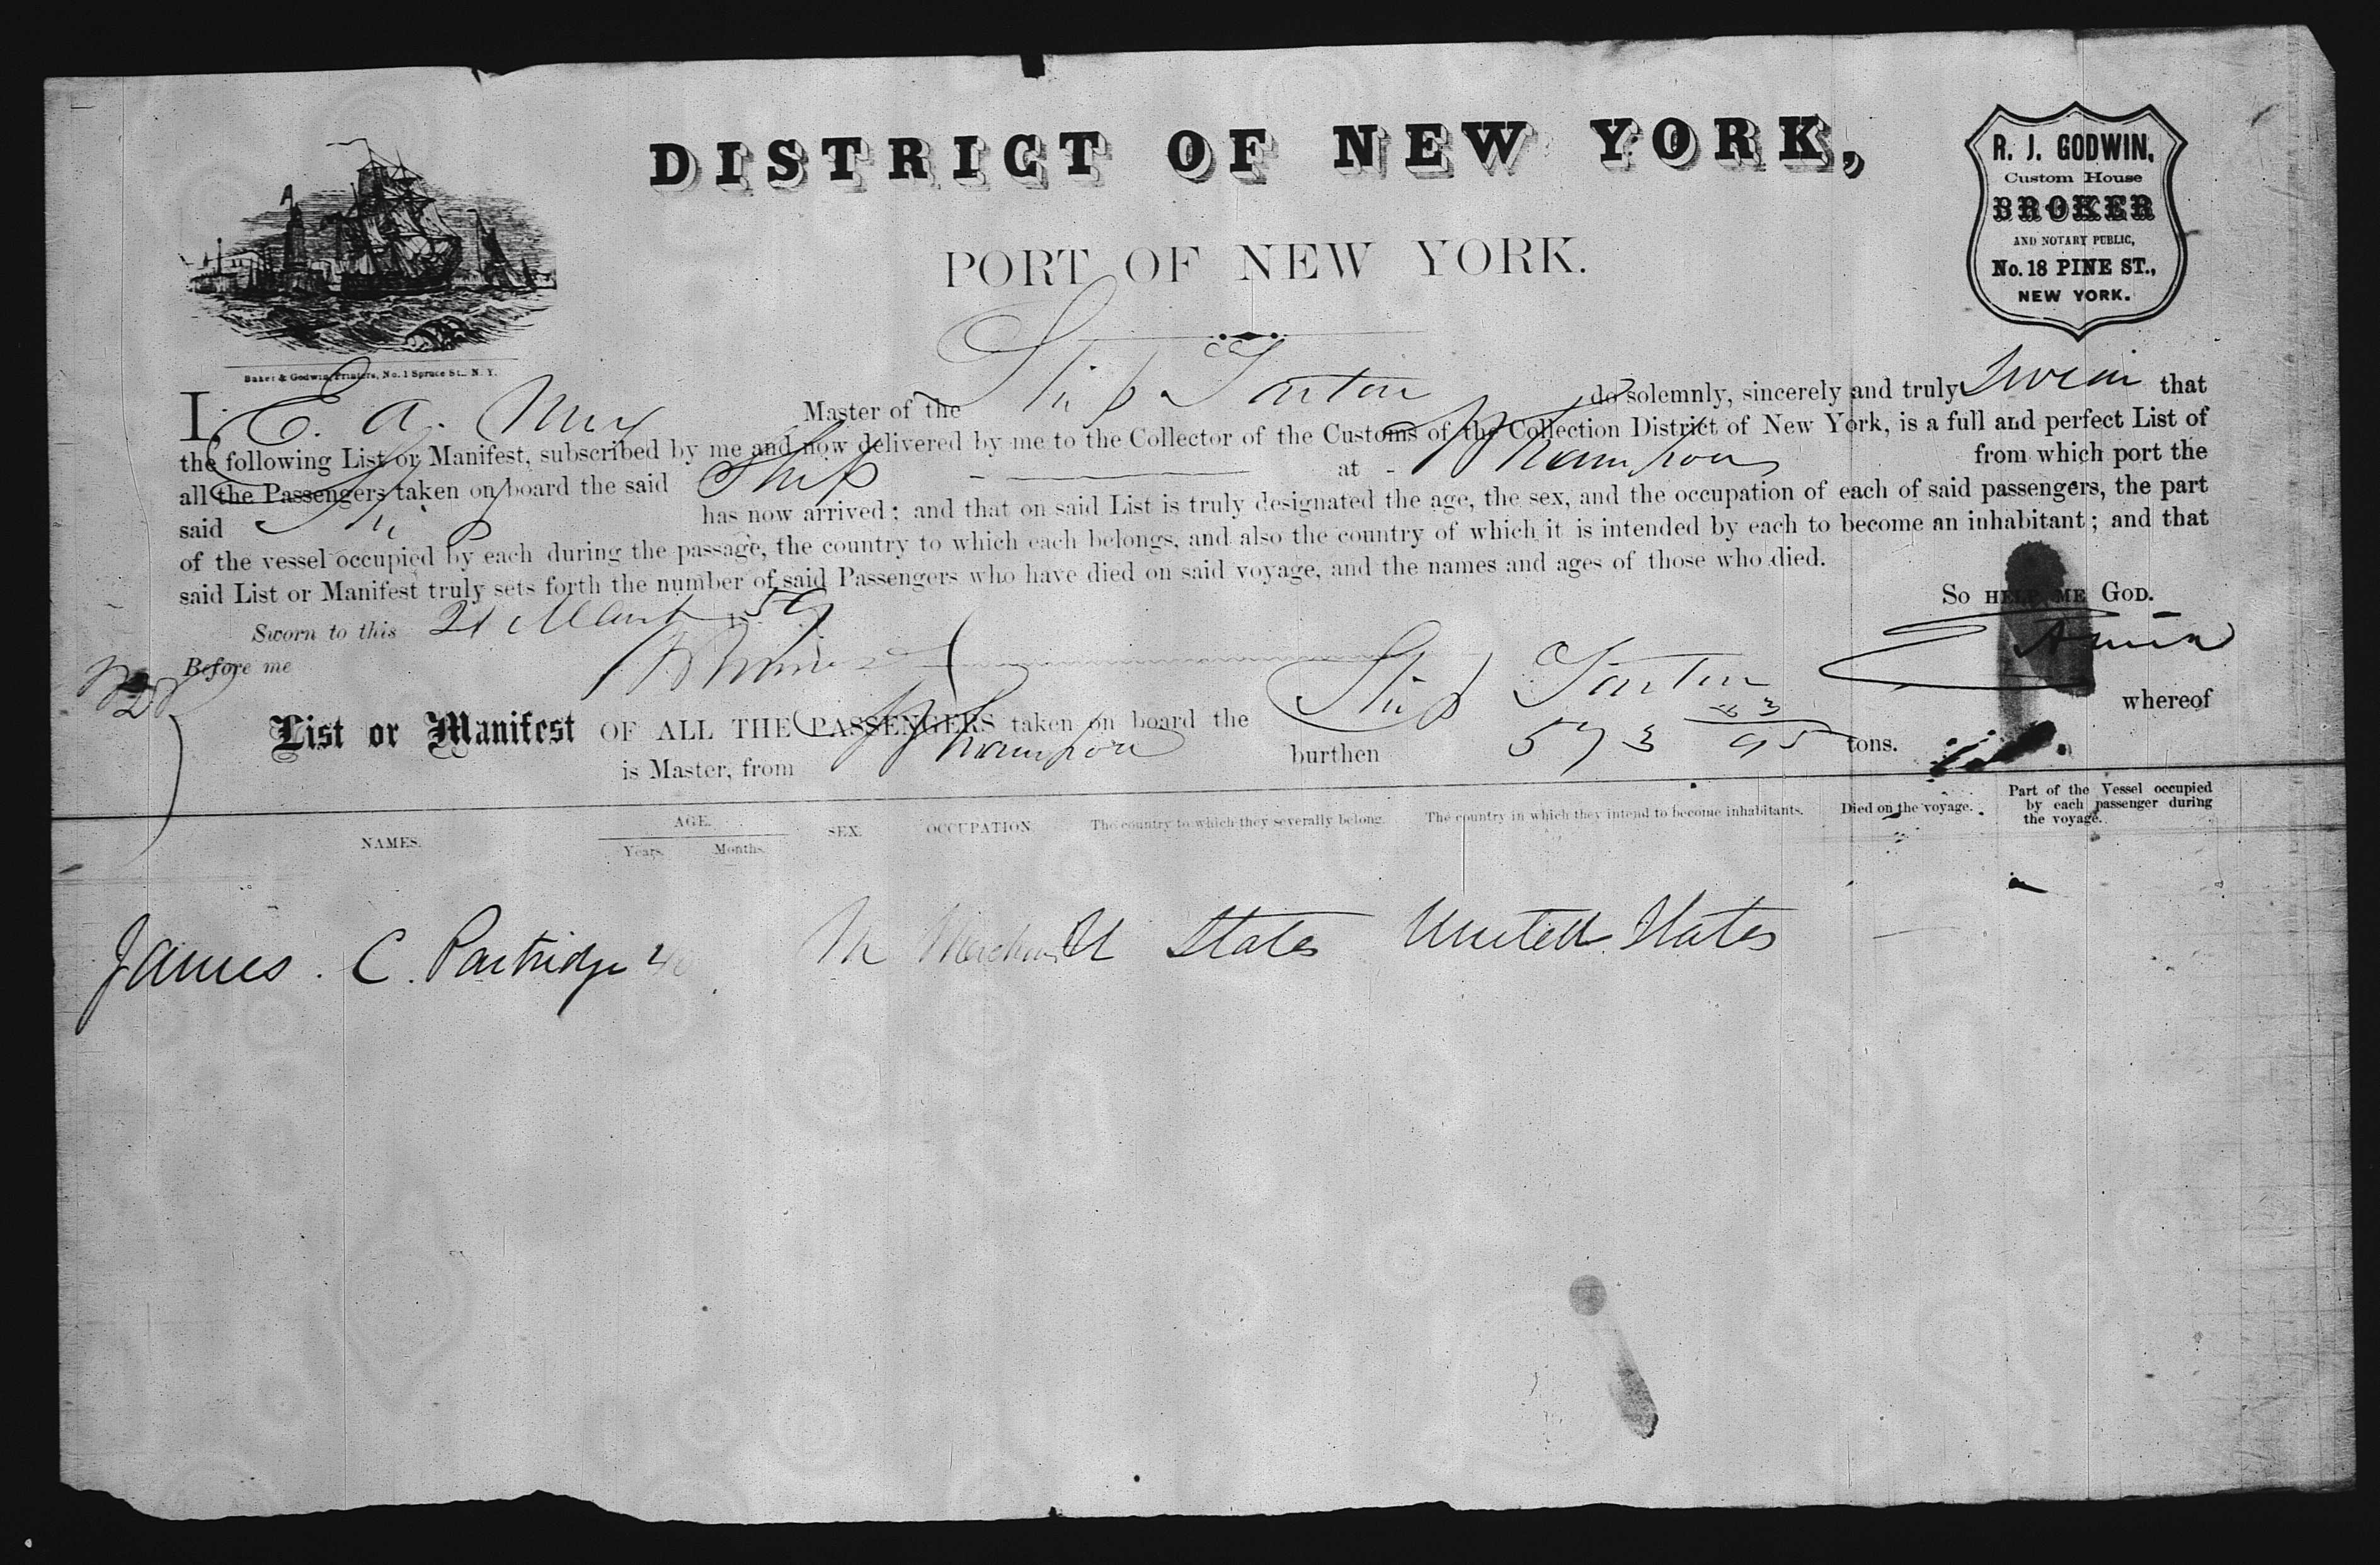 DISTRICT OF NEW YORK,
PORT OF NEW YORK.
R. J. GODWIN,
Custom House
BROKER
AND NOTARY PUBLIC,
No. 18 PINE ST.,
NEW YORK.
Baker & Godwin, Printers, No. 1 Spruce St., N. Y.
I, E. A. Master of the Ship do solemnly, sincerely and truly Swear that
the following List or Manifest, subscribed by me and now delivered by me to the Collector of the Customs of the Collection District of New York, is a full and perfect List of
all the Passengers taken on board the said Ship at from which port the
said Ship has now arrived; and that on said List is truly designated the age, the sex, and the occupation of each of said passengers, the part
of the vessel occupied by each during the passage, the country to which each belongs, and also the country of which it is intended by each to become an inhabitant; and that
said List or Manifest truly sets forth the number of said Passengers who have died on said voyage, and the names and ages of those who died.
So HELP ME GOD.
Sworn to this 21 March 1859
Before me
List or Manifest OF ALL THE PASSENGERS taken on board the Ship whereof
is Master, from burthen 573 33/95 tons.
NAMES. AGE. Years. Months. SEX. OCCUPATION. The country to which they severally belong. The country in which they intend to become inhabitants. Died on the voyage. Part of the Vessel occupied by each passenger during the voyage.
James. C. Partridge 40 M U States United States